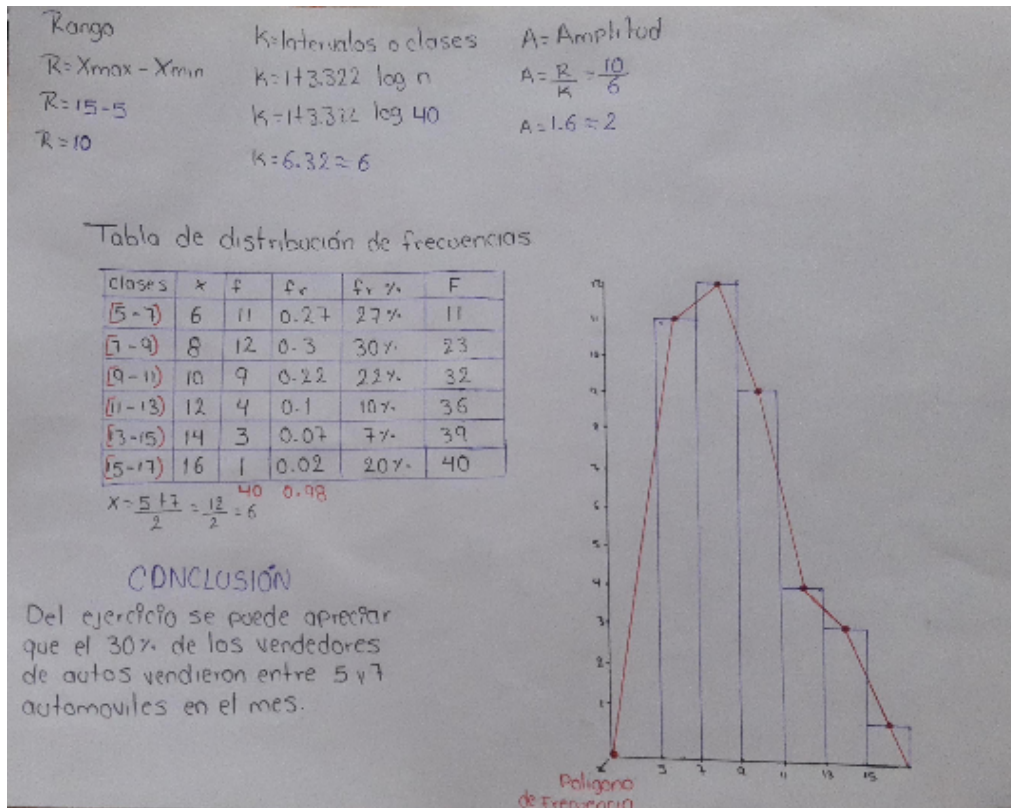 Rango
R=Xmax-Xmin
R=15-5
R=10
K=Intervalos o clases
K=1+3.322 log n
K=1+3.322 log 40
K=6.32≈6
A=Amplitud
A=R/K=10/6
A=1.6≈2
Tabla de distribución de frecuencias
clases x f fr fr % F
[5-7) 6 11 0.27 27% 11
[7-9) 8 12 0.3 30% 23
[9-11) 10 9 0.22 22% 32
[11-13) 12 4 0.1 10% 36
[13-15) 14 3 0.07 7% 39
[15-17) 16 1 0.02 20% 40
40 0.98
x=5+7/2=12/2=6
CONCLUSIÓN
Del ejercicio se puede apreciar
que el 30% de los vendedores
de autos vendieron entre 5 y 7
automoviles en el mes.
12
11
10
9
8
7
6
5
4
3
2
1
5 7 9 11 13 15
Poligono
de Frecuencia